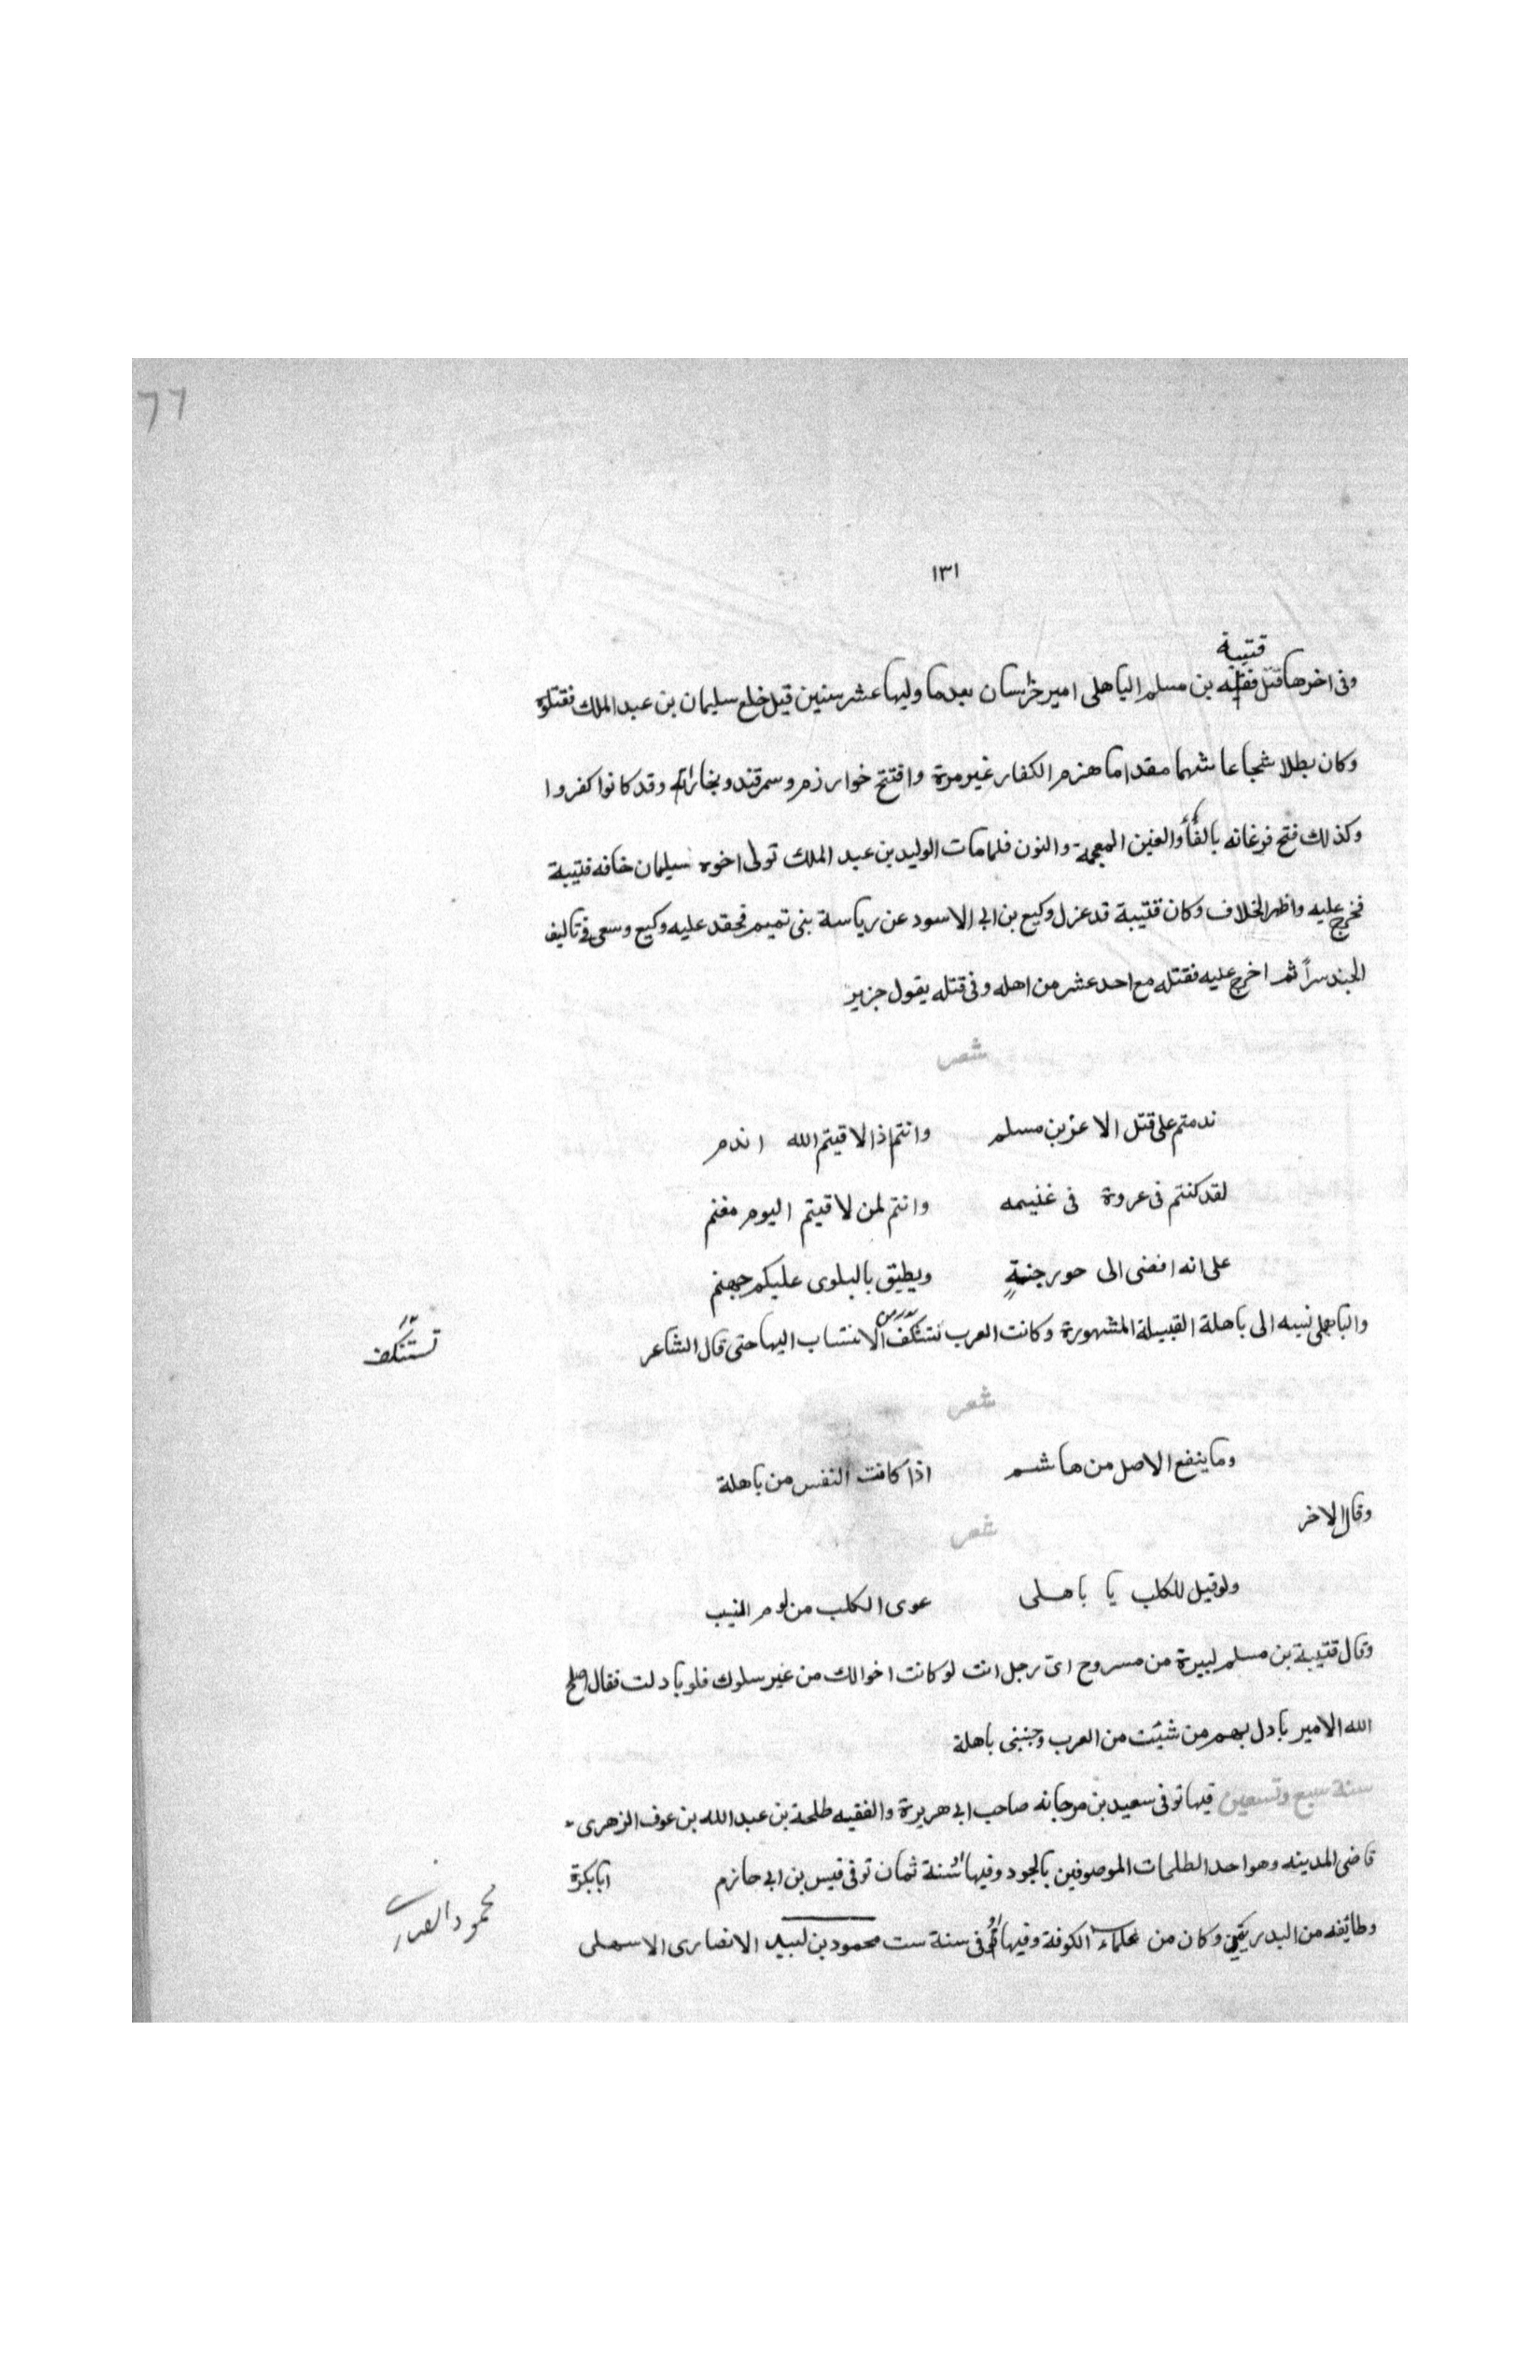 ٦٦
١٣١
قتيبة
وفى اخرها قتل بن مسلم الباهلى امير خراسان بعدما وليها عشر سنين قيل خلع سليمان بن عبد الملك فقتلوه
وكان بطلا شجاعا شهما مقداما هزم الكفار غير مرة وافتتح خوارزم وسمرقند وبخارا وقد كانوا كفروا
وكذلك فتح فرغانه بالفأ والغين المعجمة والنون فلما مات الوليد بن عبد الملك تولى اخوه سليمان خافه قتيبة
فخرج عليه واظهر الخلاف وكان قتيبة قد عزل وكيع بن ابى الاسود عن رياسة بنى تميم فحقد عليه وكيع وسعى فى تاليف
الجند سراً ثم اخرج عليه فقتله مع احد عشر من اهله وفى قتله يقول جزير
شعر
ندمتم على قتل الاعز بن مسلم وانتم اذا لاقيتم الله اندم
لقد كنتم فى عروة فى غنيمه وانتم لمن لاقيتم اليوم مغنم
على انه افضى الى حور جنةٍ ويطيق بالبلوى عليكم جهنم
والباهلى نسبه الى باهلة القبيلة المشهورة وكانت العرب تستنكف من الانتساب اليها حتى قال الشاعر
تستنكف
شعر
وما ينفع الاصل من هاشم اذا كانت النفس من باهلة
وقال الاخر
شعر
ولو قيل للكلب يا باهلى عوى الكلب من لوم النسب
وقال قتيبة بن مسلم لبيرة من مسروح اىّ رجل انت لو كانت اخوالك من غير سلوك فلو بادلت فقال اصلح
الله الامير بادل بهم من شئت من العرب وجنبنى باهلة
سنة سبع وتسعين فيها توفى سعيد بن مرجانه صاحب ابى هريرة والفقيه طلحة بن عبد الله بن عوف الزهرى
قاضى المدينه وهو احد الطلحات الموصوفين بالجود وفيها او سنة ثمان توفى قيس بن ابى حازم ابابكرة
وطايفه من البدريين وكان من علماء الكوفة وفيها او فى سنة ست محمود بن لبيد الانصارى الاسهلى
محمود